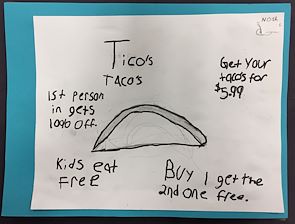 NOAH
Tico's
TACO'S
Get Your
tacos for
$5.99
1st person
in gets
100% off.
Kids eat
free
BUY 1 get the
2nd one free.